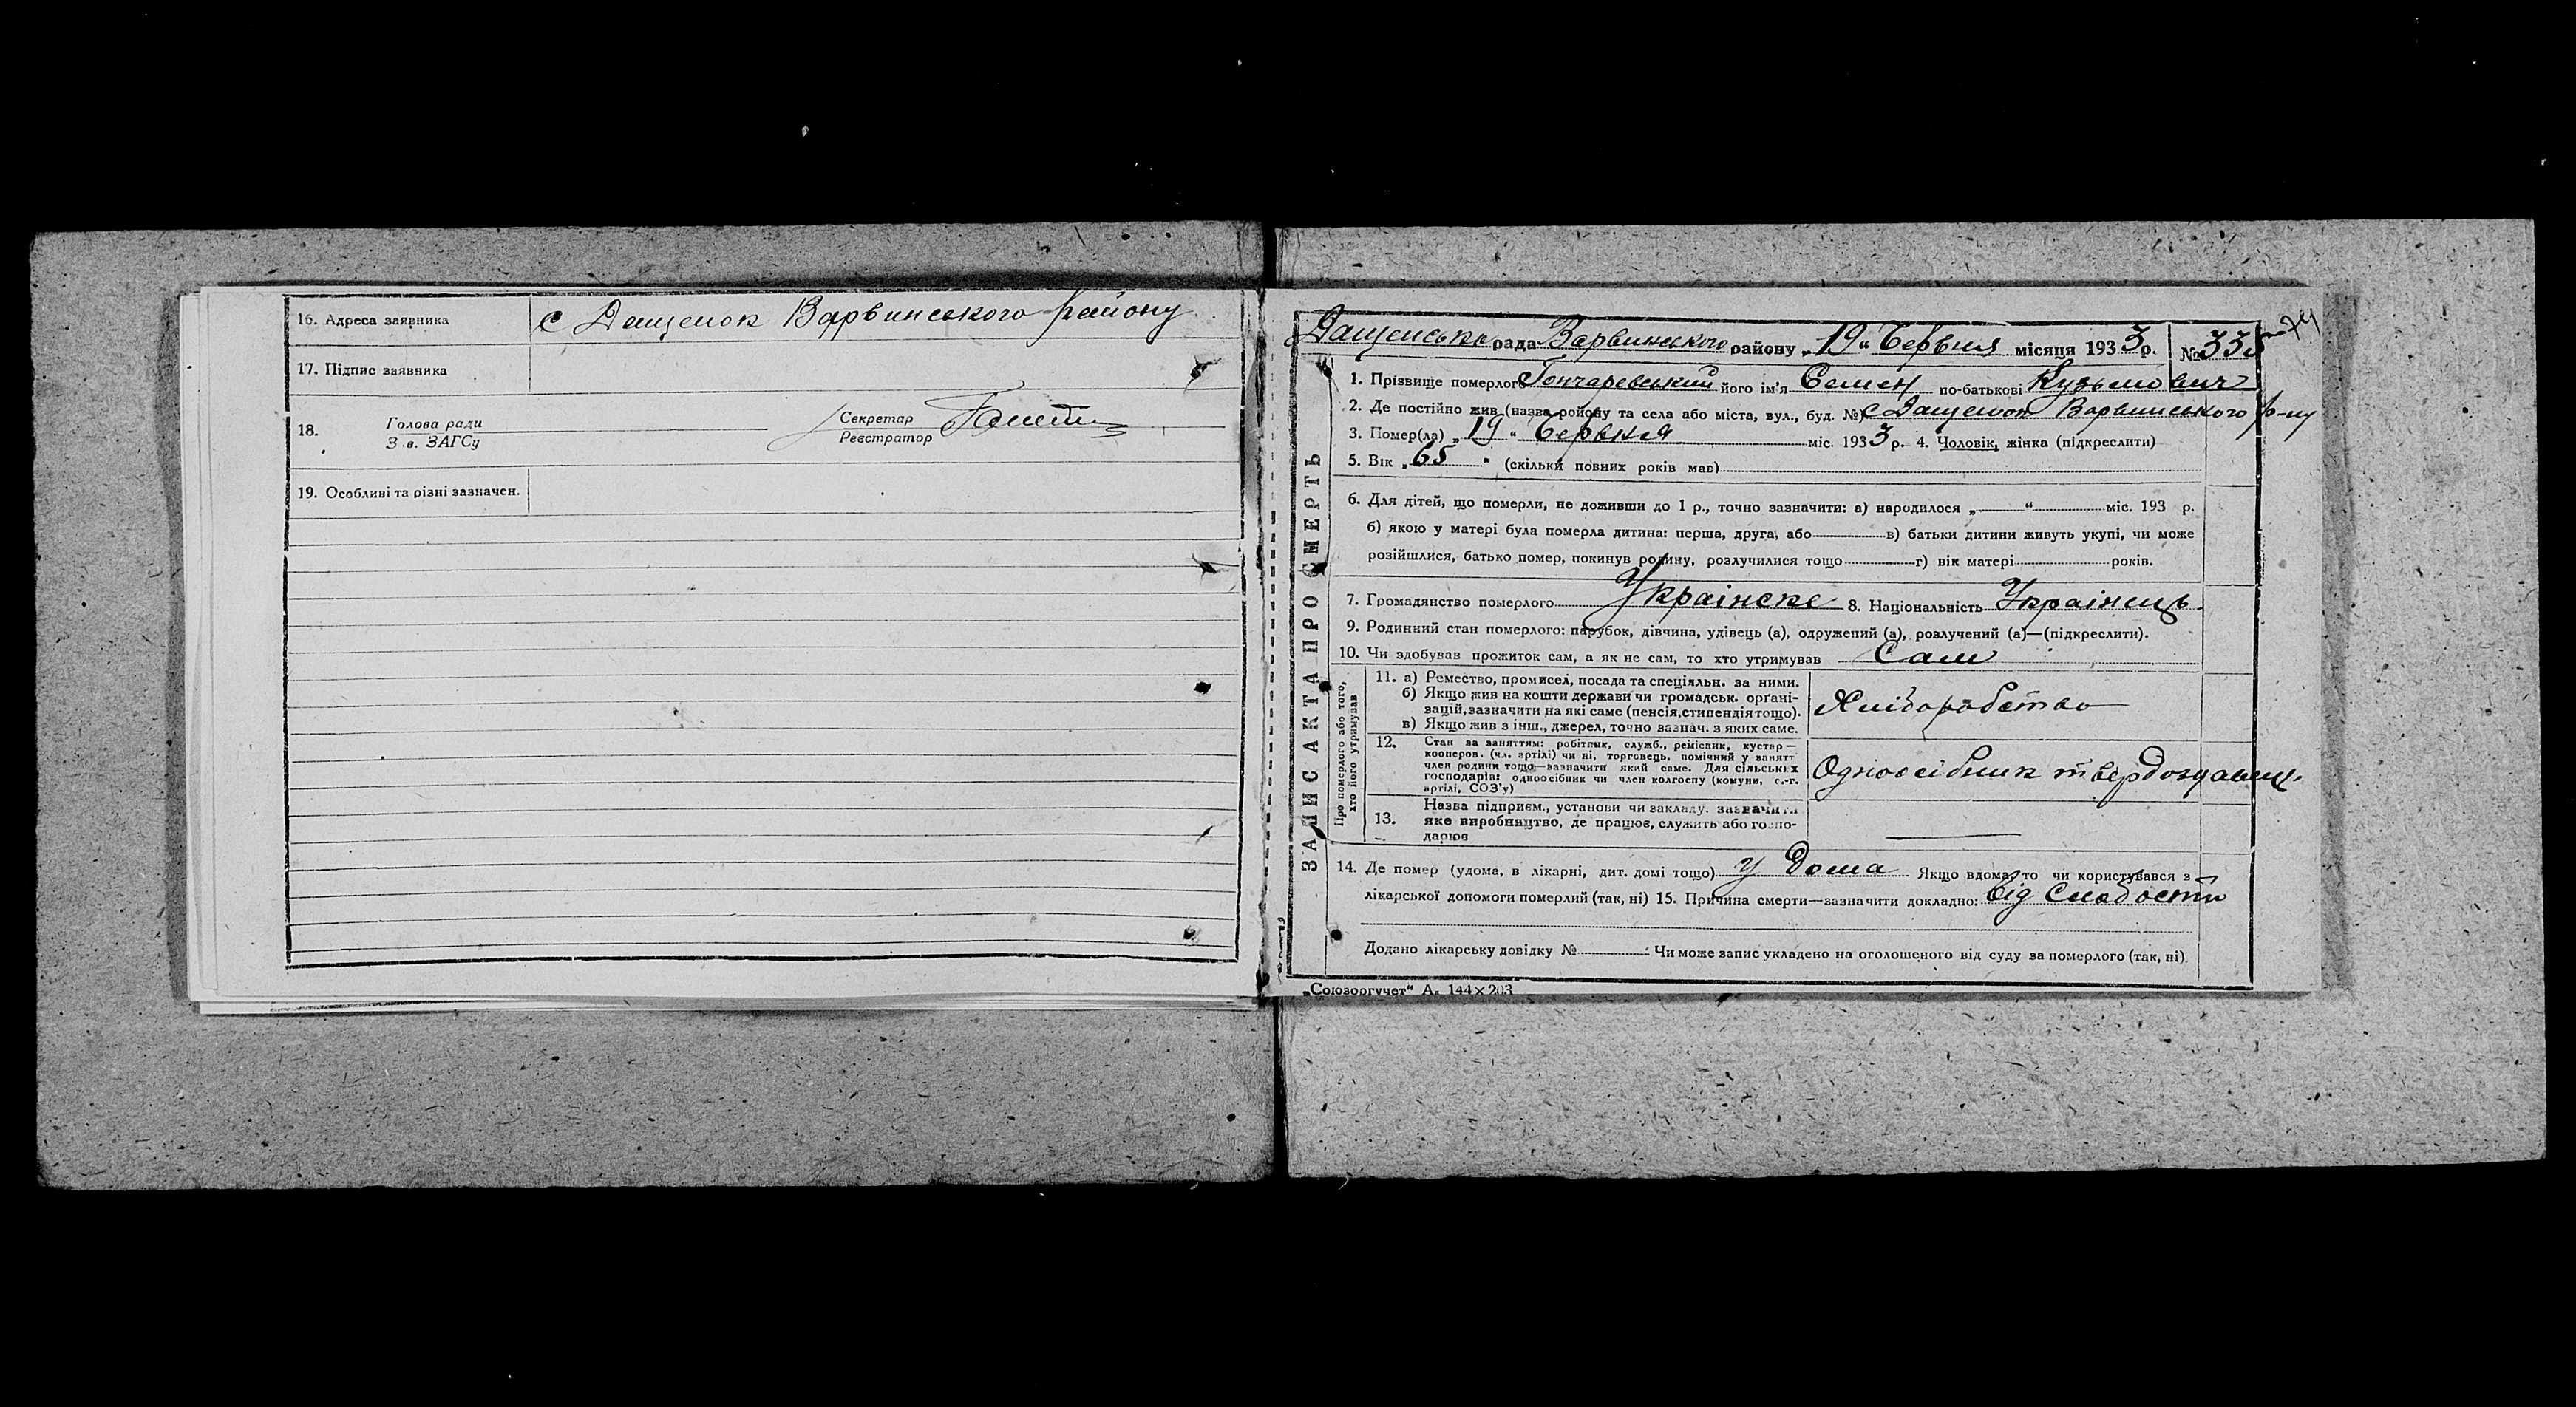 16. Адреса заявника с Дащенок Варвинського району
17. Підпис заявника
18. Голова ради
З в. ЗАГСу
Секретар
Реєстратор
19. Особливі та різні зазначен.
74
Дащенська рада Варвинського району „19“ Червня місяця 1933 р. № 335
ЗАПИС АКТА ПРО СМЕРТЬ
1. Прізвище померлого Гончаревський його ім'я Семен по-батькові Кузьмович
2. Де постійно жив (назва району та села або міста, вул., буд. №) с Дащенок Варвинського р-ну
3. Помер(ла) „19“ Червня міс. 1933 р. 4. Чоловік, жінка (підкреслити)
5. Вік „65“ (скільки повних років мав)
6. Для дітей, що померли, не доживши до 1 р., точно зазначити: а) народилося „ “ міс. 193 р.
б) якою у матері була померла дитина: перша, друга, або в) батьки дитини живуть укупі, чи може
розійшлися, батько помер, покинув родину, розлучилися тощо г) вік матері років.
7. Громадянство померлого Українске 8. Національність Українець
9. Родинний стан померлого: парубок, дівчина, удівець (а), одружений (а), розлучений (а)—(підкреслити).
10. Чи здобував прожиток сам, а як не сам, то хто утримував Сам
Про померлого або того,
хто його утримував
11. а) Ремество, промисел, посада та спеціяльн. за ними.
б) Якщо жив на кошти держави чи громадськ. органі-
зацій, зазначити на які саме (пенсія, стипендія тощо).
в) Якщо жив з інш., джерел, точно зазнач. з яких саме.
Хліборобство
12. Стан за заняттям: робітник, служб., ремісник, кустар—
кооперов. (чл. артілі) чи ні, торговець, помічний у занятт
член родини тощо—зазначити який саме. Для сільських
господарів: одноосібник чи член колгоспу (комуни, с.-г.
артілі, СОЗ'у)
Одноосібник твердоздавец
13. Назва підприєм., установи чи закладу. зазначити
яке виробництво, де працює, служить або госпо-
дарює
14. Де помер (удома, в лікарні, дит. домі тощо) у дома Якщо вдома, то чи користувався з
лікарської допомоги померлий (так, ні) 15. Причина смерти—зазначити докладно: від слабости
Додано лікарську довідку № Чи може запис укладено на оголошеного від суду за померлого (так, ні)
„Союзоргучет“ А. 144×203